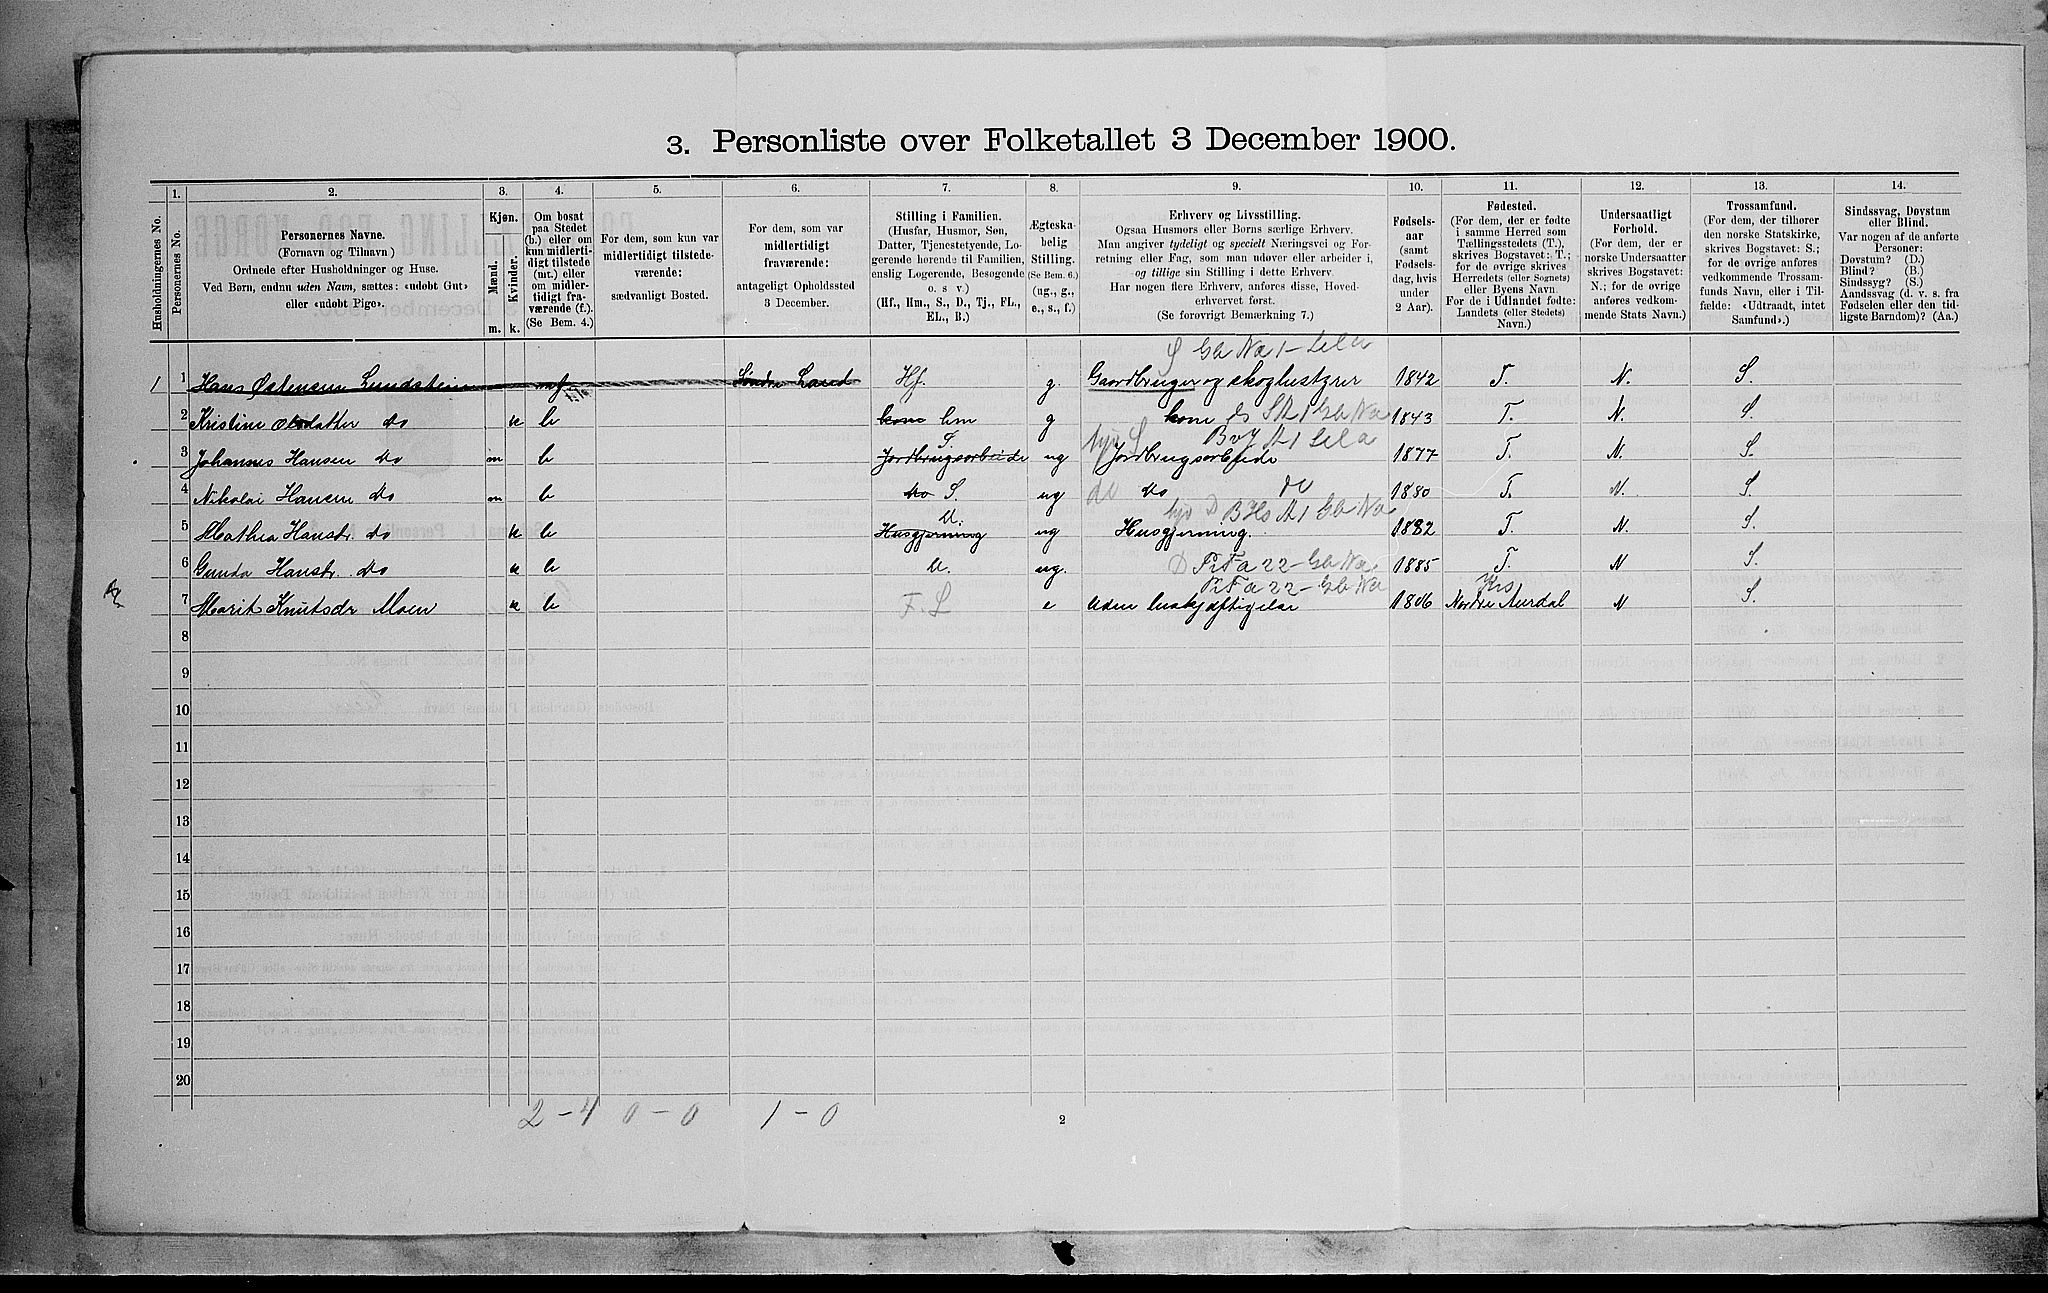 3. Personliste over Folketallet 3 December 1900.
1. 2. 3. 4. 5. 6. 7. 8. 9. 10. 11. 12. 13. 14.
Husholdningernes No.
Personernes No.
Personernes Navne.
(Fornavn og Tilnavn)
Ordnede efter Husholdninger og Huse.
Ved Børn, endnu uden Navn, sættes: «udøbt Gut»
eller «udøbt Pige».
Kjøn.
Mænd.
Kvinder.
m. k.
Om bosat
paa Stedet
(b.) eller om
kun midlerti-
digt tilstede
(mt.) eller
om midler-
tidigt fra-
værende (f.).
(Se Bem. 4.)
For dem, som kun var
midlertidigt tilstede-
værende:
sædvanligt Bosted.
For dem, som var
midlertidigt
fraværende:
antageligt Opholdssted
3 December.
Stilling i Familien.
(Husfar, Husmor, Søn,
Datter, Tjenestetyende, Lo-
gerende hørende til Familien,
enslig Logerende, Besøgende
o. s. v.)
(Hf., Hm., S., D., Tj., FL.,
EL., B.)
Ægteska-
belig
Stilling.
(Se Bem. 6.)
(ug., g.,
e., s., f.)
Erhverv og Livsstilling.
Ogsaa Husmors eller Børns særlige Erhverv.
Man angiver tydeligt og specielt Næringsvei og For-
retning eller Fag, som man udøver eller arbeider i,
og tillige sin Stilling i dette Erhverv.
Har nogen flere Erhverv, anføres disse, Hoved-
erhvervet først.
(Se forøvrigt Bemærkning 7.)
Fødsels-
aar
(samt
Fødsels-
dag, hvis
under
2 Aar).
Fødested.
(For dem, der er fødte
i samme Herred som
Tællingsstedets (T.),
skrives Bogstavet: T.;
for de øvrige skrives
Herredets (eller Sognets)
eller Byens Navn.
For de i Udlandet fødte:
Landets (eller Stedets)
Navn.)
Undersaatligt
Forhold.
(For dem, der er
norske Undersaatter
skrives Bogstavet:
N.; for de øvrige
anføres vedkom-
mende Stats Navn.)
Trossamfund.
(For dem, der tilhører
den norske Statskirke,
skrives Bogstavet: S.;
for de øvrige anføres
vedkommende Trossam-
funds Navn, eller i Til-
fælde: «Udtraadt, intet
Samfund».)
Sindssvag, Døvstum
eller Blind.
Var nogen af de anførte
Personer:
Døvstum? (D.)
Blind? (B.)
Sindssyg? (S.)
Aandssvag (d. v. s. fra
Fødselen eller den tid-
ligste Barndom)? (Aa.)
S Gb Na 1-
1 1 Hans Østensen Lundstein f Søndre Land Hf. g. Gaardbruger og skogbestyrer 1842 T. N. S.
2 Kristine Olsdatter do k b kone hm g kone Gb Na 1843 T. N. S.
S. hjv S
3 Johannes Hansen do m b Jordbrugsarbeide ug Jordbrugsarbeide 1877 T. N. S.
4 Nikolai Hansen do m b do S. ug do do do 1880 T. N. S.
D. hjv D Gb Na
5 Mathea Hansdr. do k b Husgjerning ug Husgjerning. 1882 T. N. S.
6 Gunda Hansdr. do k b D. ug. D P. Fa 22-Gb Na 1885 T. N S.
P. Fa 22-Gb Na
7 Marit Knutsdr Moen k b F. L e Uden beskjæftigelse 1806 Nordre Aurdal N S.
8
9
10
11
12
13
14
15
16
17
18
19
20
2-4 0-0 1-0
2